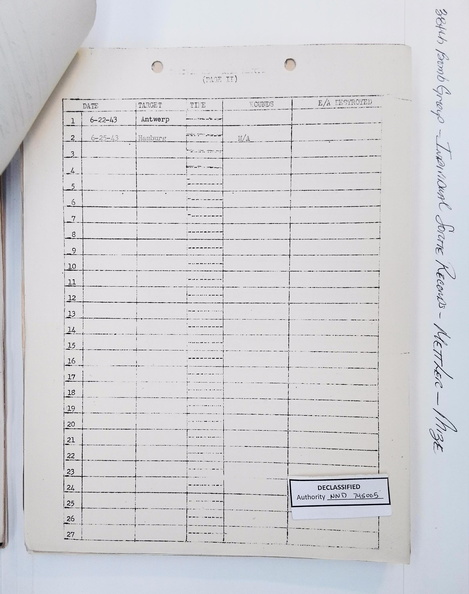 (PAGE II)
DATE TARGET TIME ROUNDS E/A DESTROYED
1 6-22-43 Antwerp
2 6-25-43 Hamburg N/A
3
4
5
6
7
8
9
10
11
12
13
14
15
16
17
18
19
20
21
22
23
24
25
26
27
DECLASSIFIED
Authority NND 745005
384th Bomb Group - Individual Sortie Record - Mettler - Mize